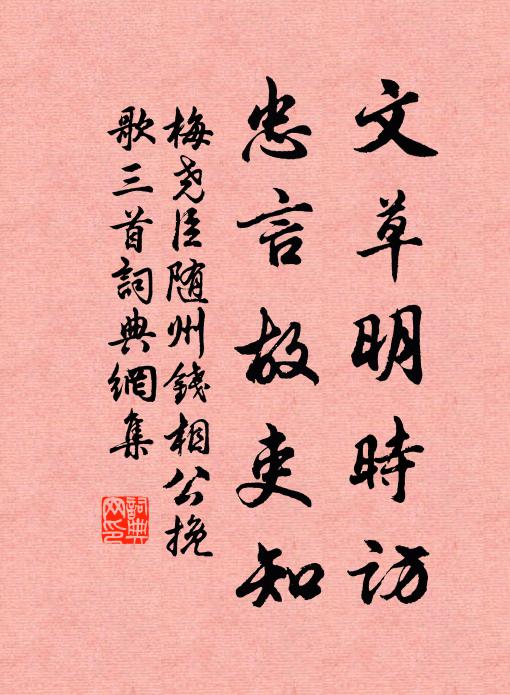 文草明時訪
忠言故吏知
梅堯臣随州錢相公挽
歌三首詞典網集
詞典
网印